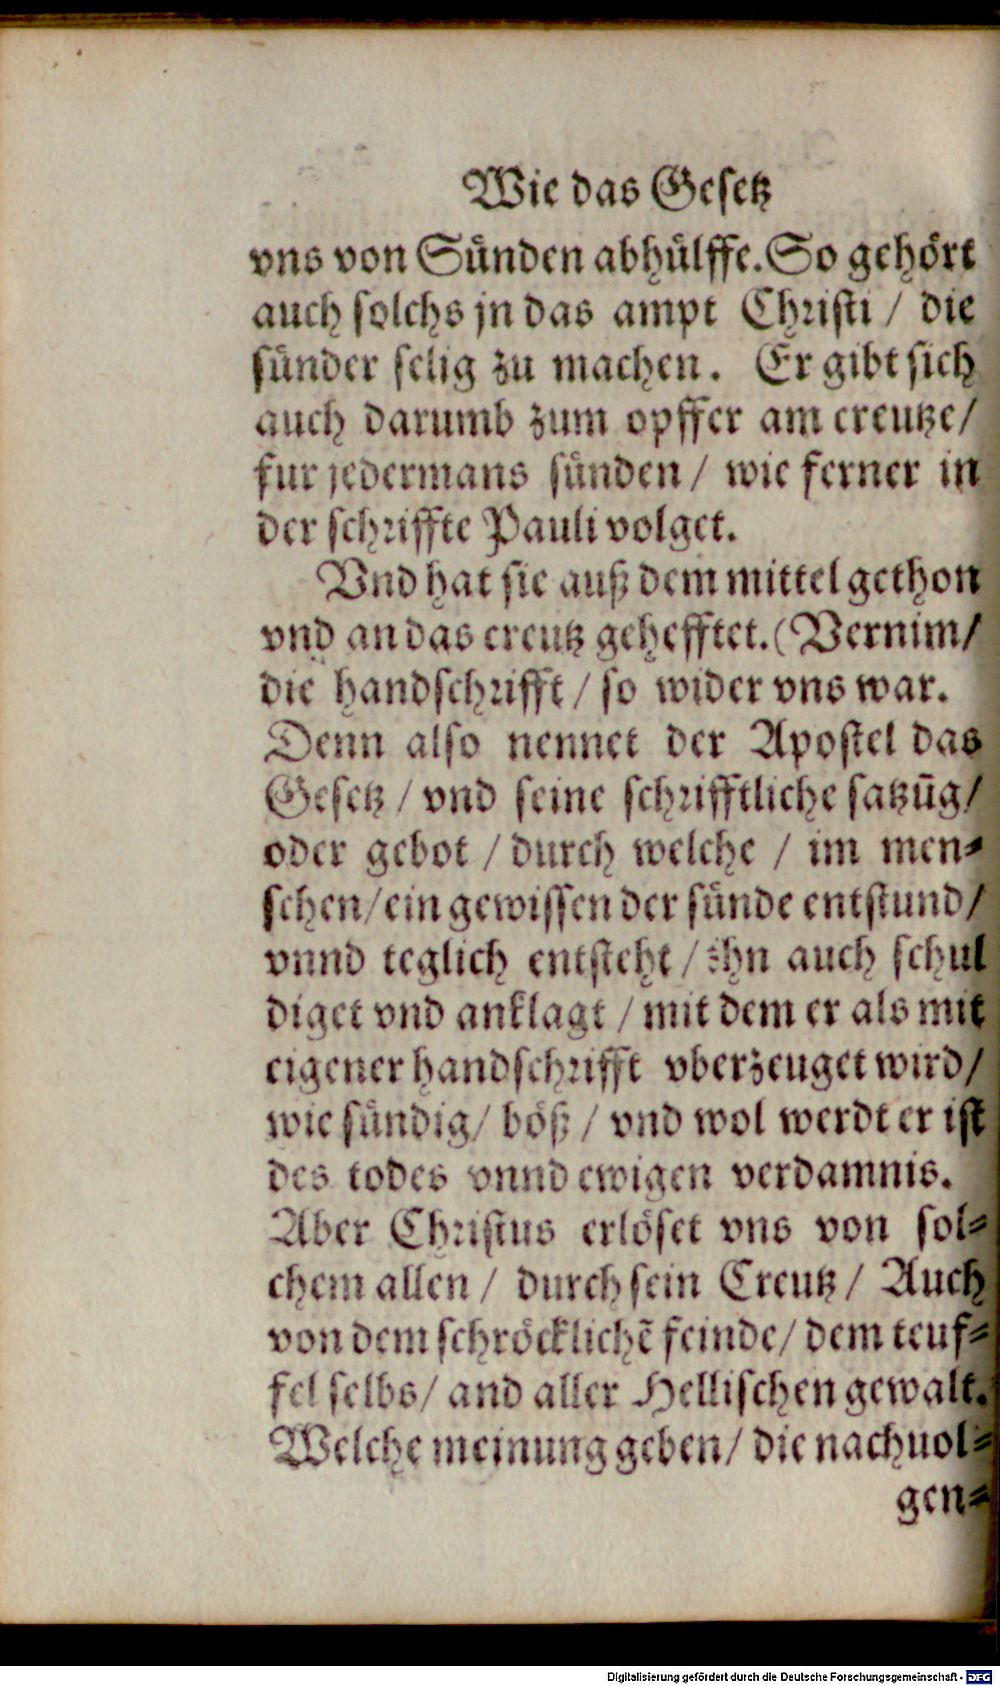 Wie das Gesetz
vns von Sünden abhülffe. So gehört
auch solchs jn das ampt Christi / die
sünder selig zu machen. Er gibt sich
auch darumb zum opffer am creutze/
fur jedermans sünden / wie ferner in
der schriffte Pauli volget.
Vnd hat sie auß dem mittel gethon
vnd an das creutz gehefftet. (Vernim/
die handschrifft / so wider vns war.
Denn also nennet der Apostel das
Gesetz / vnd seine schrifftliche satzūg/
oder gebot / durch welche / im men⸗
schen/ ein gewissen der sünde entstund/
vnnd teglich entsteht / ihn auch schul
diget vnd anklagt / mit dem er als mit
eigener handschrifft vberzeuget wird/
wie sündig/ böß / vnd wol werdt er ist
des todes vnnd ewigen verdamnis.
Aber Christus erlöset vns von sol⸗
chem allen / durch sein Creutz / Auch
von dem schröcklichē feinde/ dem teuf⸗
fel selbs/ and aller Hellischen gewalt.
Welche meinung geben/ die nachuol⸗
gen⸗
Digitalisierung gefördert durch die Deutsche Forschungsgemeinschaft - DFG